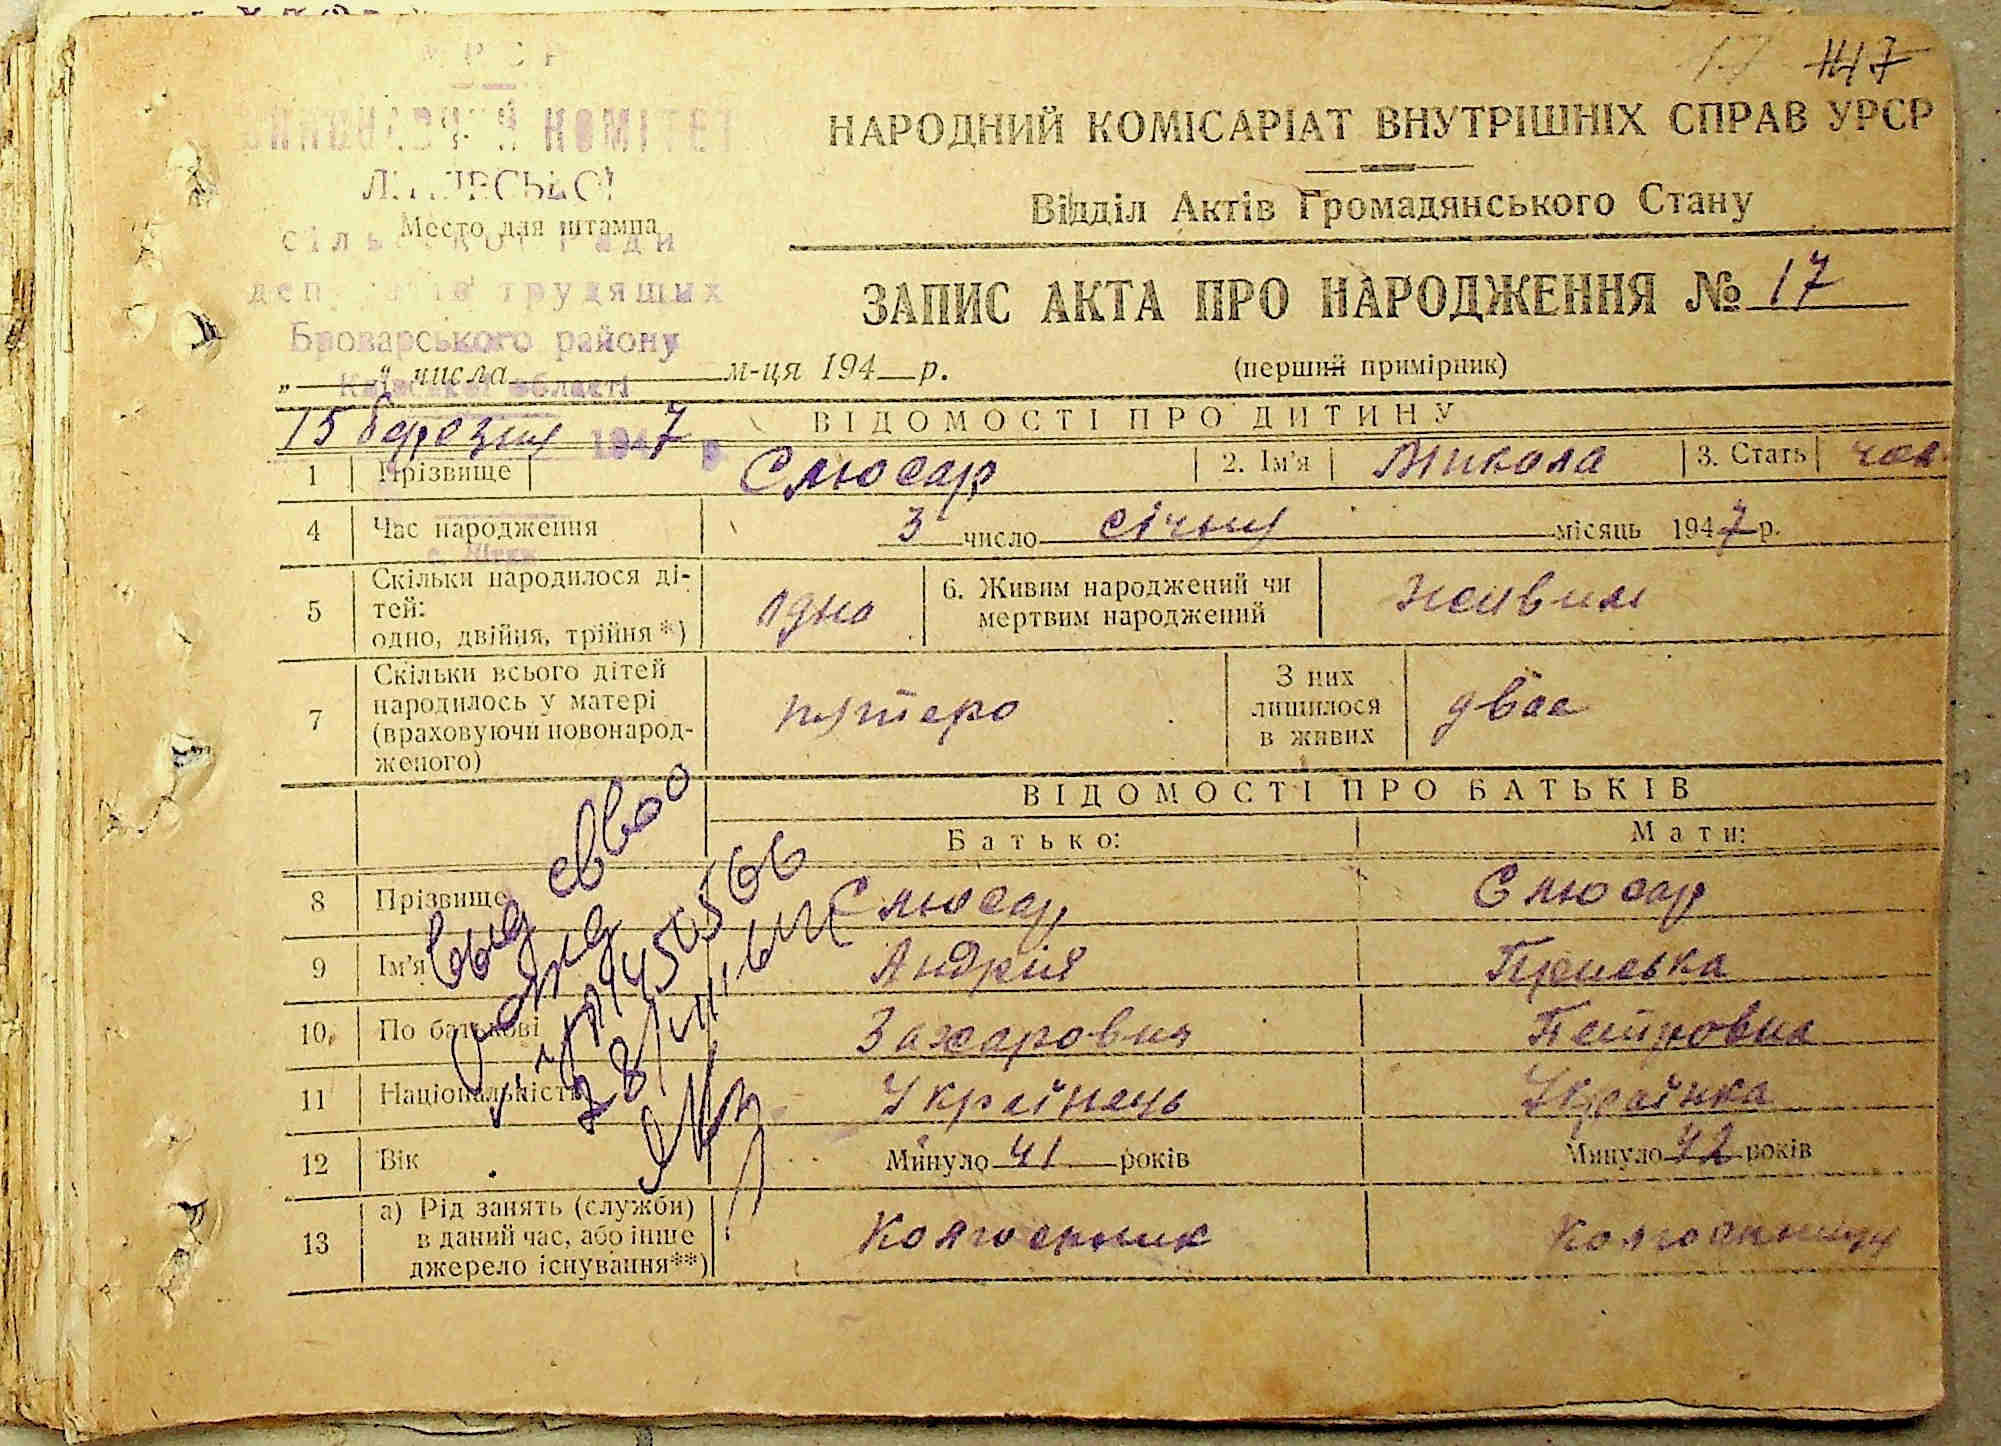 17 147
УРСР
ВИКОНАВЧИЙ КОМІТЕТ
Место для штампа
сільської ради
депутатів трудящых
Броварського району
Київської області
НАРОДНИЙ КОМІСАРІАТ ВНУТРІШНІХ СПРАВ УРСР
Відділ Актів Громадянського Стану
ЗАПИС АКТА ПРО НАРОДЖЕННЯ № 17
„ “ числа м-ця 194 р. (перший примірник)
15 березня 1947 р.
ВІДОМОСТІ ПРО ДИТИНУ
1 Прізвище Слюсар 2. Ім'я Микола 3. Стать чол.
4 Час народження 3 число січня місяць 1947 р.
5 Скільки народилося ді-
тей:
одно, двійня, трійня*) одно 6. Живим народжений чи
мертвим народжений живим
7 Скільки всього дітей
народилось у матері
(враховуючи новонарод-
женого) пятеро З них
лишилося
в живих двое
ВІДОМОСТІ ПРО БАТЬКІВ
Батько: Мати:
8 Прізвище Слюсар Слюсар
9 Ім'я Андрій Приська
10. По батькові Захаровия Петровна
11 Національність Українець Українка
12 Вік Минуло 41 років Минуло 42 років
13 а) Рід занять (служби)
в даний час, або інше
джерело існування**) Колгоспник Колгоспниця